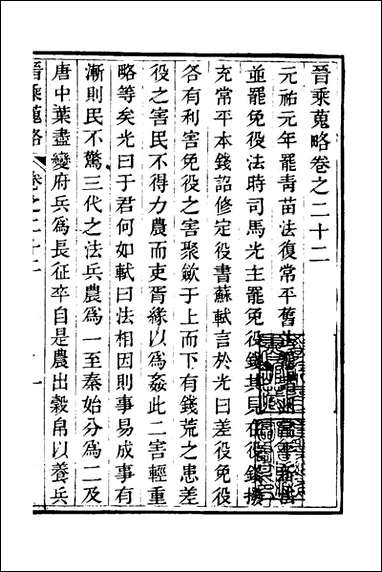 晉乘蒐略卷之二十二
元祐元年罷青苗法復常平舊法
並罷免役法時司馬光主罷免役錢其見在役錢撥
充常平本錢詔修定役書蘇軾言於光曰差役免役
各有利害免役之害聚歛于上而下有錢荒之患差
役之害民不得力農而吏胥緣以爲姦此二害輕重
略等矣光曰于君何如軾曰法相因則事易成事有
漸則民不驚三代之法兵農爲一至秦始分爲二及
唐中葉盡變府兵爲長征卒自是農出穀帛以養兵
晉乘蒐略 卷之二十二 一